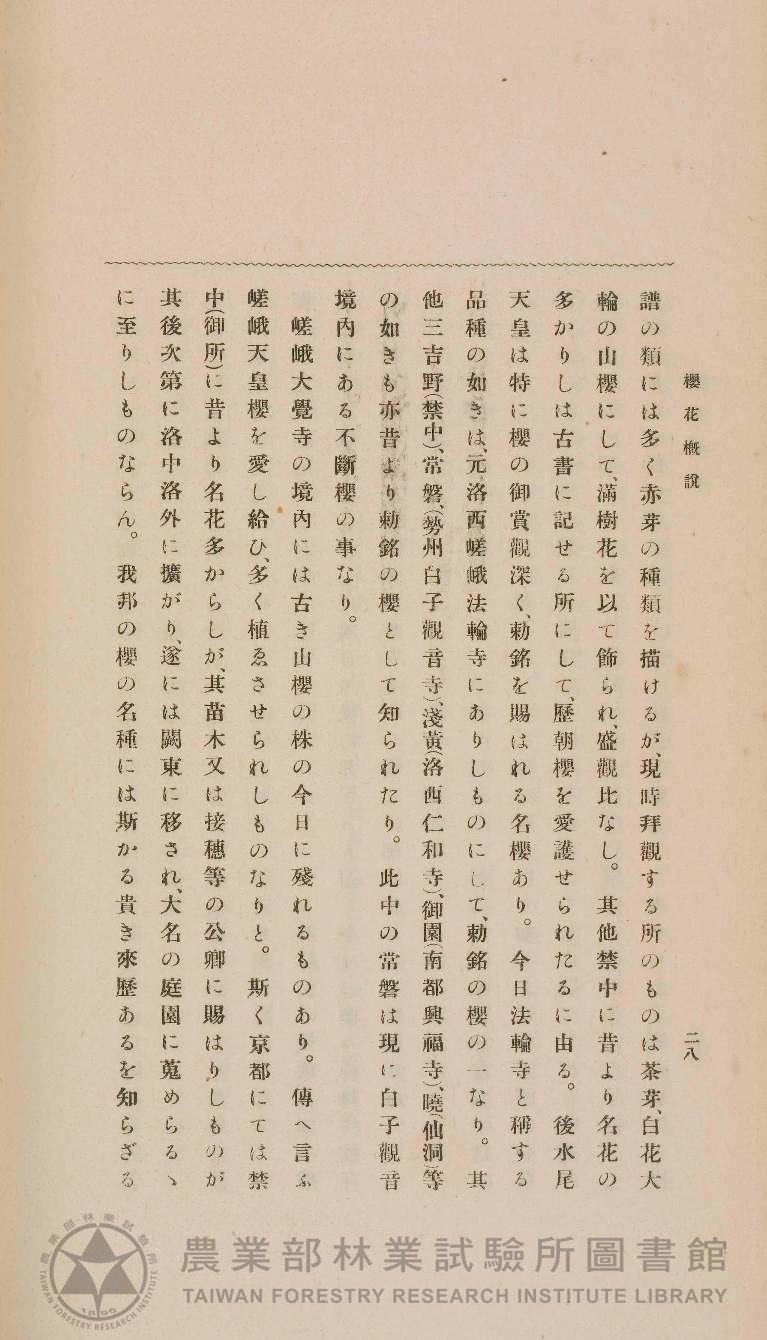 櫻花概說
二八
譜の類には多く赤芽の種類を描けるが、現時拜觀する所のものは茶芽、白花大
輪の山櫻にして、滿樹花を以て飾られ、盛觀比なし。其他禁中に昔より名花の
多かりしは古書に記せる所にして、歷朝櫻を愛護せられたるに由る。後水尾
天皇は特に櫻の御賞觀深く、勅銘を賜はれる名櫻あり。今日法輪寺と稱する
品種の如きは、元、洛西嵯峨法輪寺にありしものにして、勅銘の櫻の一なり。其
他三吉野(禁中)、常磐、(勢州白子觀音寺)、淺黃(洛西仁和寺)、御園(南都興福寺)、曉(仙洞)等
の如きも亦昔より勅銘の櫻として知られたり。此中の常磐は現に白子觀音
境內にある不斷櫻の事なり。
嵯峨大覺寺の境內には古き山櫻の株の今日に殘れるものあり。傳へ言ふ
嵯峨天皇櫻を愛し給ひ、多く植ゑさせられしものなりと。斯く京都にては禁
中(御所)に昔より名花多からしが、其苗木又は接穗等の公卿に賜はりしものが
其後次第に洛中洛外に擴がり、遂には關東に移され、大名の庭園に蒐めらるゝ
に至りしものならん。我邦の櫻の名種には斯かる貴き來歷あるを知らざる
農業部林業試驗所圖書館
TAIWAN FORESTRY RESEARCH INSTITUTE LIBRARY
農業部林業試驗所
TAIWAN FORESTRY RESEARCH INSTITUTE
1896